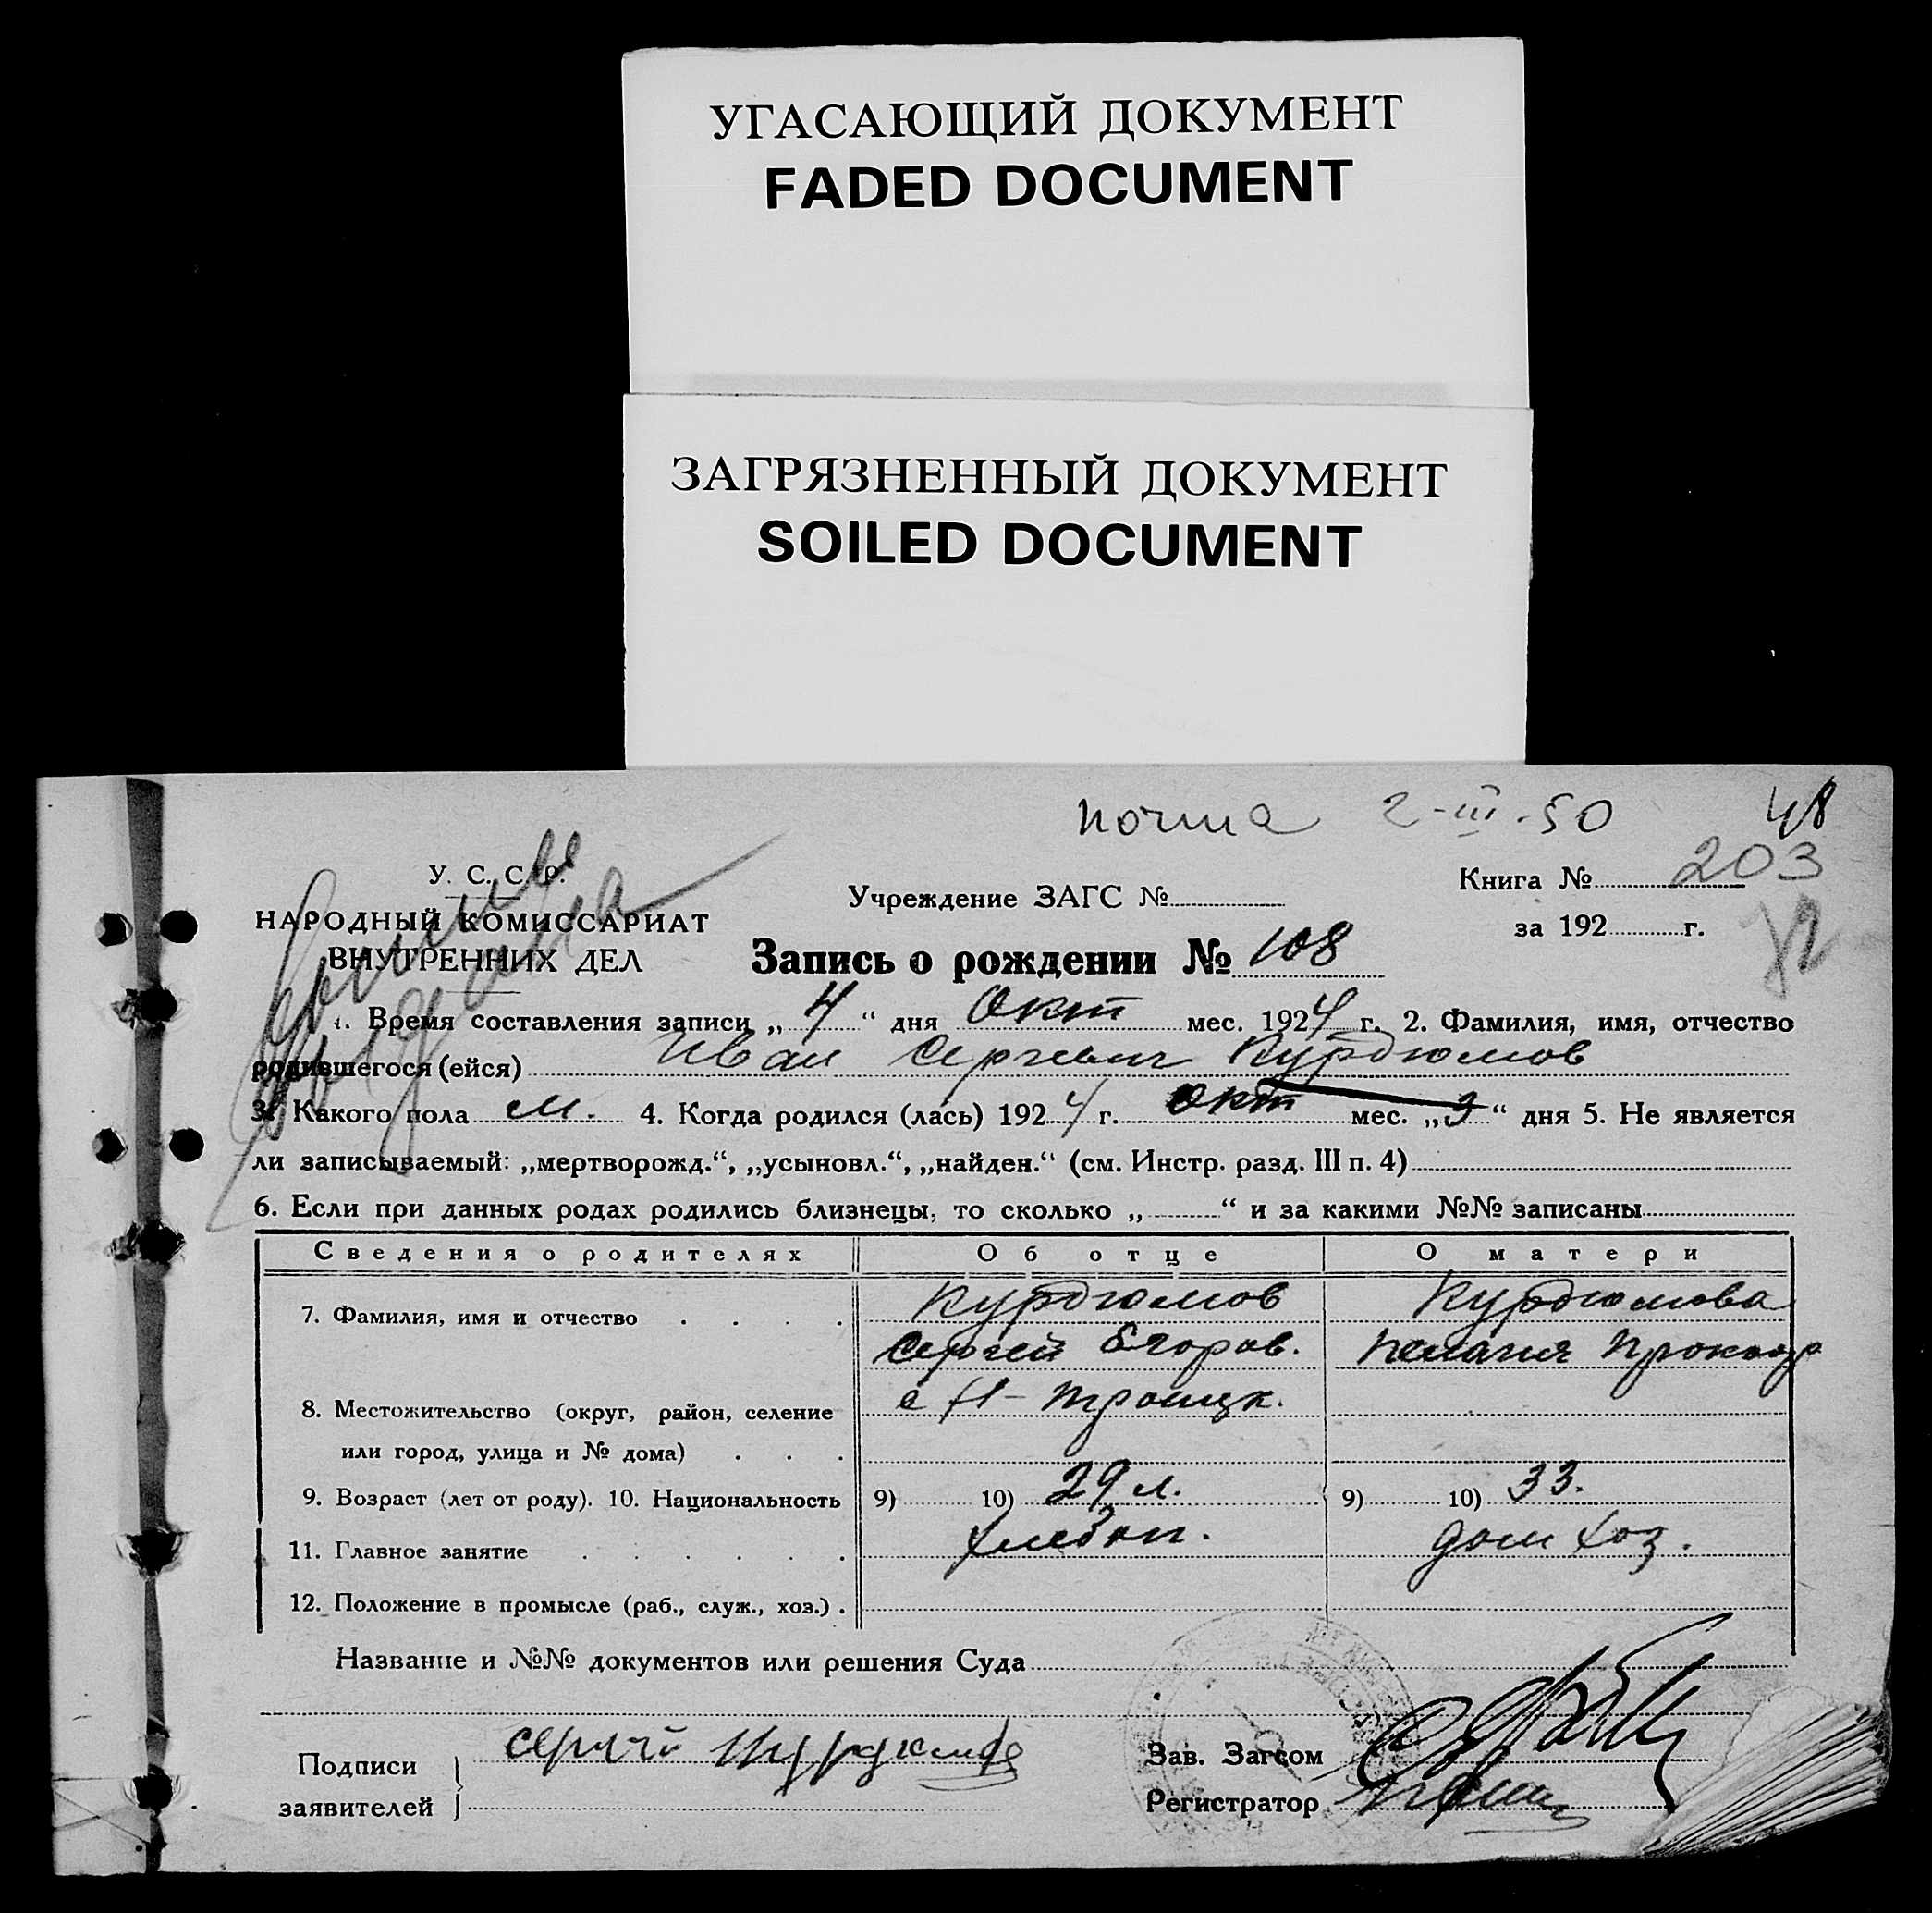 УГАСАЮЩИЙ ДОКУМЕНТ
FADED DOCUMENT
ЗАГРЯЗНЕННЫЙ ДОКУМЕНТ
SOILED DOCUMENT
почта 2-III-50
48
У. С. С. Р.
НАРОДНЫЙ КОМИССАРИАТ
ВНУТРЕННИХ ДЕЛ
Учреждение ЗАГС №
Книга № 203
за 192 г.
Запись о рождении № 108
1. Время составления записи „ 4 “ дня Окт мес. 1924 г. 2. Фамилия, имя, отчество
родившегося (ейся) Иван Сергеевич Курдюмов
3. Какого пола м. 4. Когда родился (лась) 1924 г. Окт мес. „ 3 “ дня 5. Не является
ли записываемый: „мертворожд.“, „усыновл.“, „найден.“ (см. Инстр. разд. III п. 4)
6. Если при данных родах родились близнецы, то сколько „ “ и за какими №№ записаны
Сведения о родителях Об отце О матери
7. Фамилия, имя и отчество . . . . Курдюмов Курдюмова
Сергей Егоров. Пелагия
8. Местожительство (округ, район, селение с Н-Троицк.
или город, улица и № дома) . . .
9. Возраст (лет от роду). 10. Национальность 9) 10) 29 л. 9) 10) 33.
11. Главное занятие . . . . . . хлебоп. дом хоз.
12. Положение в промысле (раб., служ., хоз.) .
Название и №№ документов или решения Суда
Подписи
заявителей
Сергей
Зав. Загсом
Регистратор